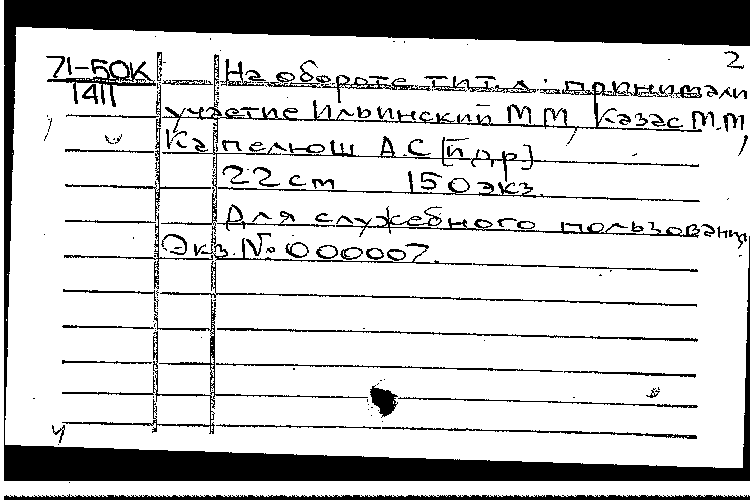 2
71-50К На обороте тит.л.: принимали
1411
участие Ильинский М.М., Казас М.М.,
Капелюш А.С. [и др.]
22 cm 150 экз.
Для служебного пользования
Экз. № 000007.